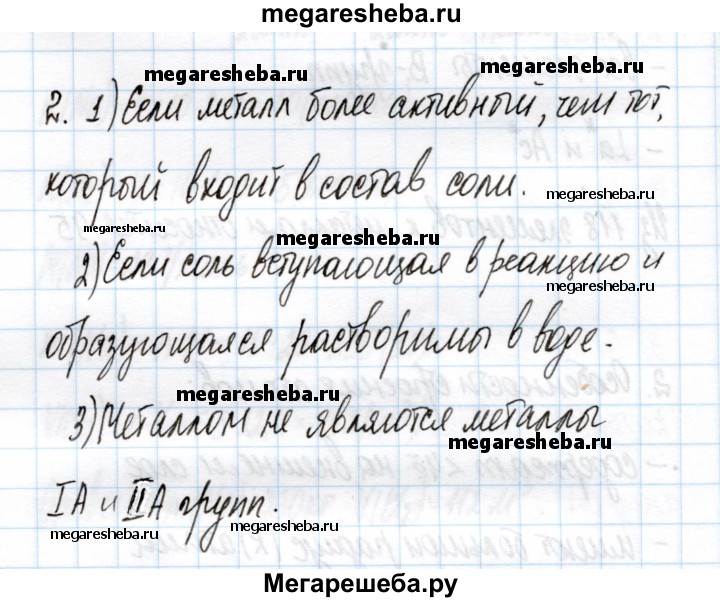 megaresheba.ru
megaresheba.ru
megaresheba.ru
2. 1) Если металл более активный, чем тот,
который входит в состав соли.
megaresheba.ru
megaresheba.ru
2) Если соль вступающая в реакцию и
megaresheba.ru
образующаяся растворимы в воде.
megaresheba.ru
3) Металлом не являются металлы
megaresheba.ru
IA и IIA групп.
megaresheba.ru
megaresheba.ru
Мегарешеба.ру